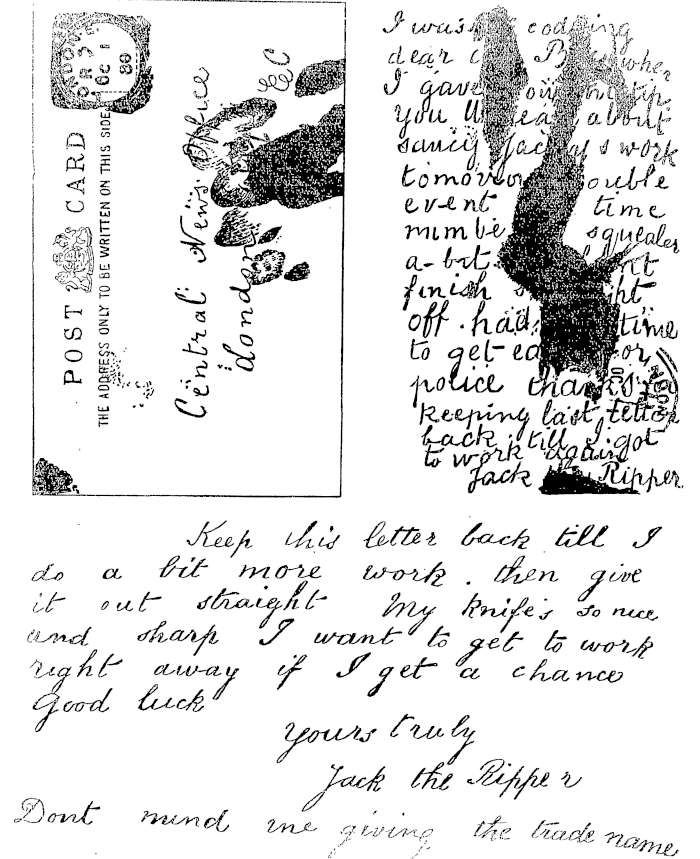 POST CARD
THE ADDRESS ONLY TO BE WRITTEN ON THIS SIDE
Central News Office
London
EC
I was codding
dear
I gave
you about
saucy Jacky s work
tomorrow double
event time
number squealer
a bit
finish
off. had time
to get for
police thanks for
keeping last letter
back till I got
to work again
Jack Ripper
Keep this letter back till I
do a bit more work. then give
it out straight My knife's so nice
and sharp I want to get to work
right away if I get a chance
Good luck
yours truly
Jack the Ripper
Dont mind me giving the trade name